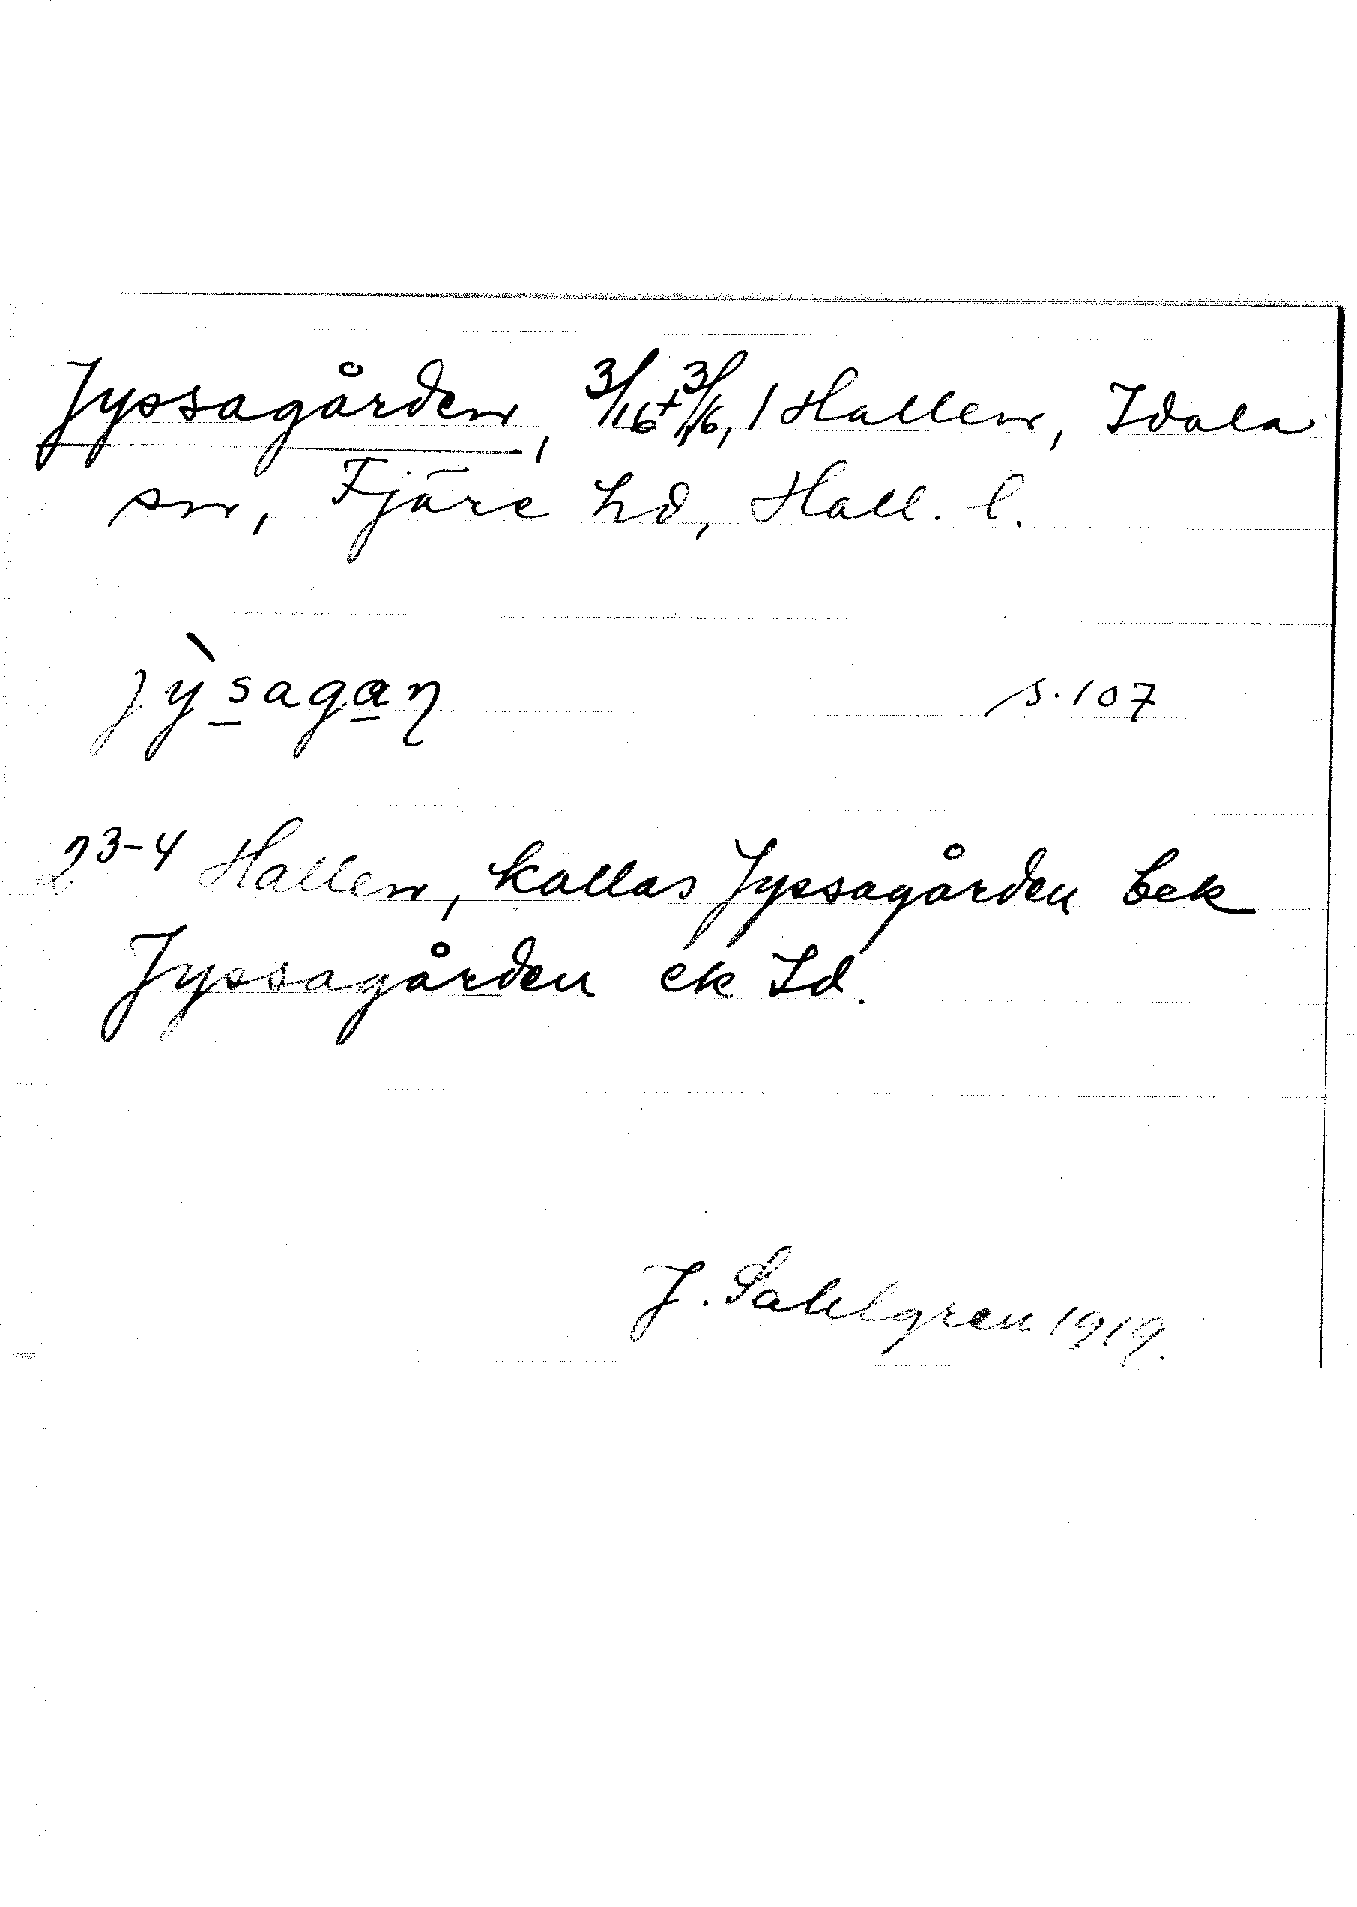 Jyssagården, 3/16+3/16, 1 Hallen, Idala
sn, Fjäre hd, Hall. l.
jỳsagaŋ s. 107
2 3-4 Hallen, kallas Jyssagården bek
Jyssagården ek Id.
J. Sahlgren 1919.